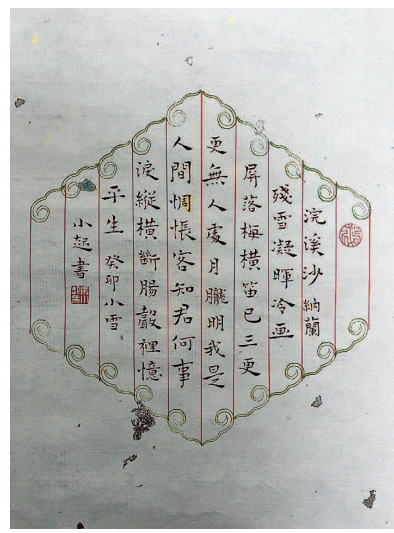 浣溪沙 納蘭
殘雪凝暉冷画
屏落梅橫笛已三更
更無人處月朧明我是
人間惆悵客知君何事
淚縱橫斷腸聲裡憶
平生 癸卯小雪
小起書